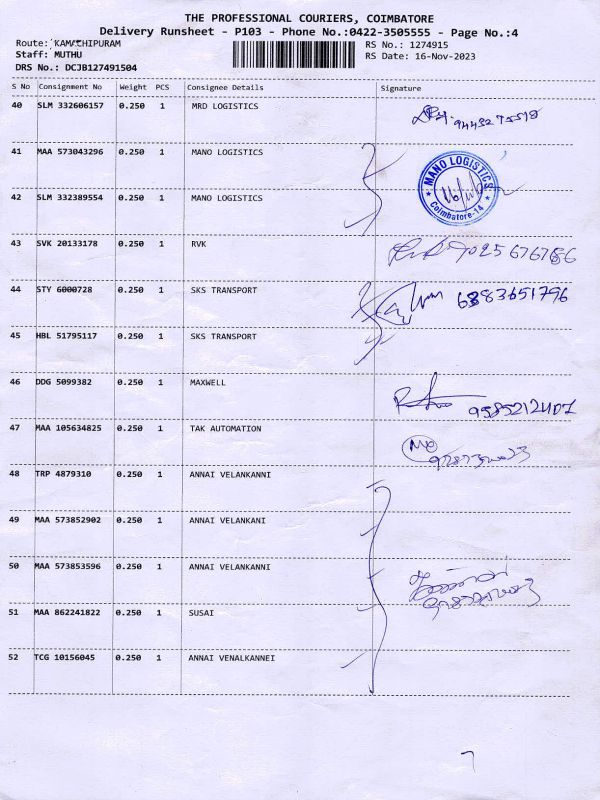 THE PROFESSIONAL COURIERS, COIMBATORE
Delivery Runsheet - P103 - Phone No.:0422-3505555 - Page No.:4
Route: KAMATCHIPURAM RS No.: 1274915
Staff: MUTHU RS Date: 16-Nov-2023
DRS No.: DCJB127491504
S No Consignment No Weight PCS Consignee Details Signature
40 SLM 332606157 0.250 1 MRD LOGISTICS
41 MAA 573043296 0.250 1 MANO LOGISTICS
MANO LOGISTICS
Coimbatore-14
42 SLM 332389554 0.250 1 MANO LOGISTICS
43 SVK 20133178 0.250 1 RVK
44 STY 6000728 0.250 1 SKS TRANSPORT 6383651796
45 HBL 51795117 0.250 1 SKS TRANSPORT
46 DDG 5099382 0.250 1 MAXWELL 9585212407
47 MAA 105634825 0.250 1 TAK AUTOMATION
48 TRP 4879310 0.250 1 ANNAI VELANKANNI
49 MAA 573852902 0.250 1 ANNAI VELANKANI
50 MAA 573853596 0.250 1 ANNAI VELANKANNI
51 MAA 862241822 0.250 1 SUSAI
52 TCG 10156045 0.250 1 ANNAI VENALKANNEI